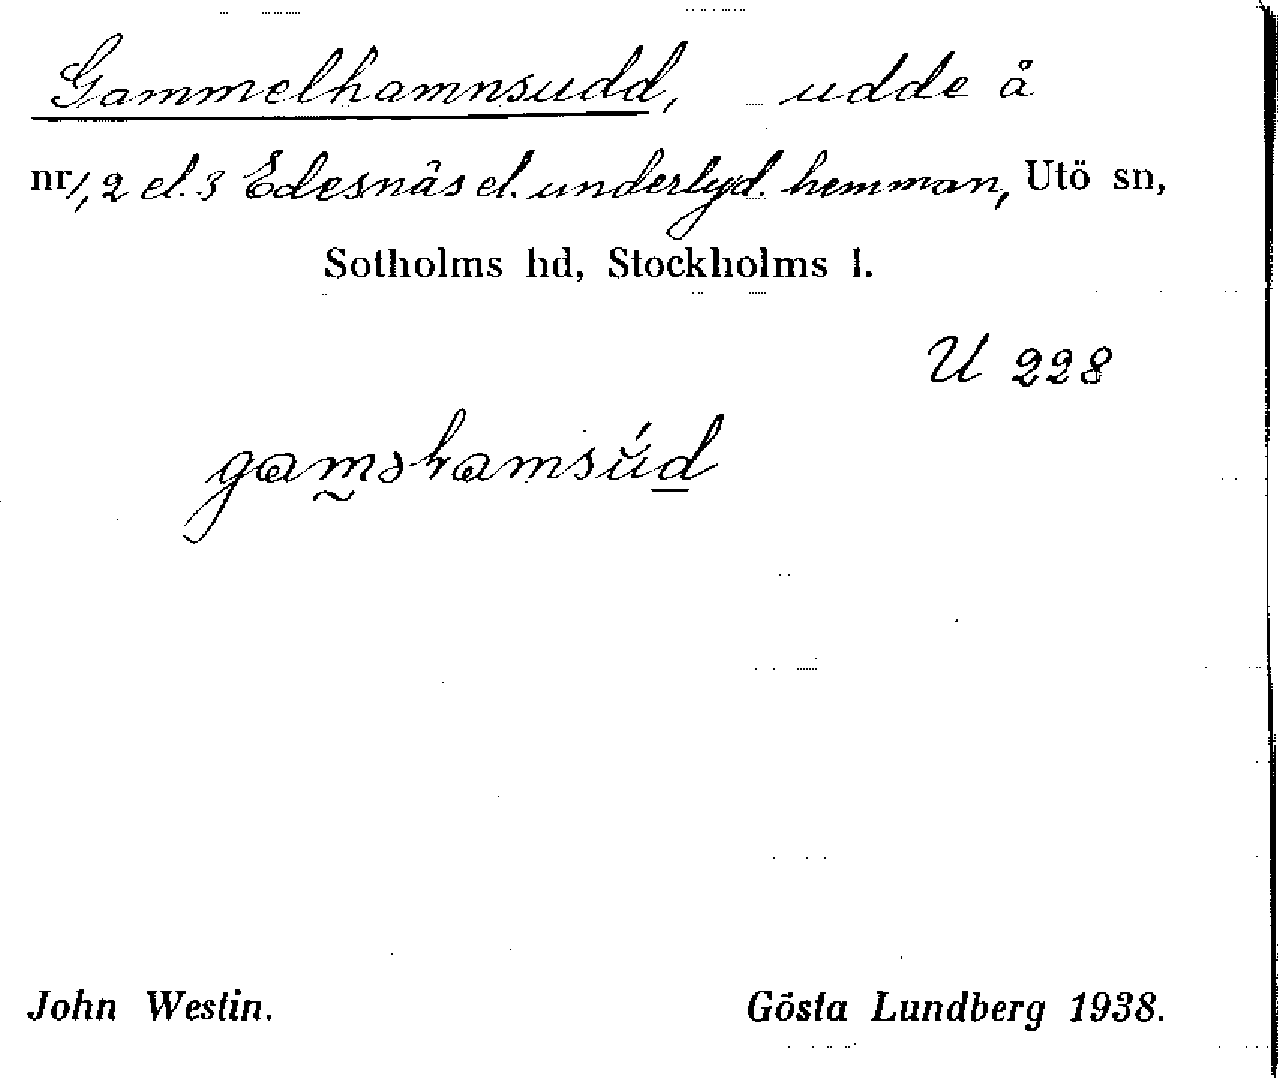 Gammelhamnsudd, udde å
nr 1, 2 el. 3 Edesnäs el. underlyd. hemman, Utö sn,
Sotholms hd, Stockholms l.
U 228
John Westin. Gösta Lundberg 1938.